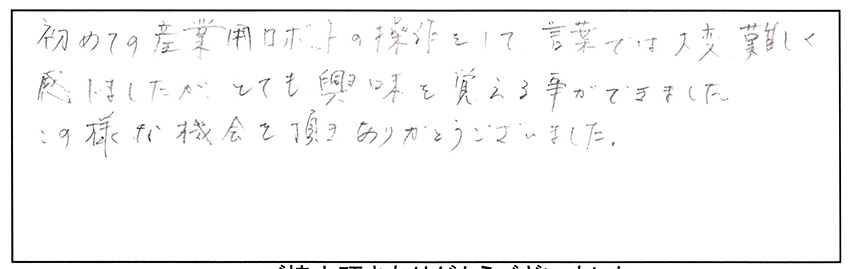 初めての産業用ロボットの操作をして言葉では大変難しく
感じましたが とても興味を覚える事ができました。
この様な機会を頂きありがとうございました。